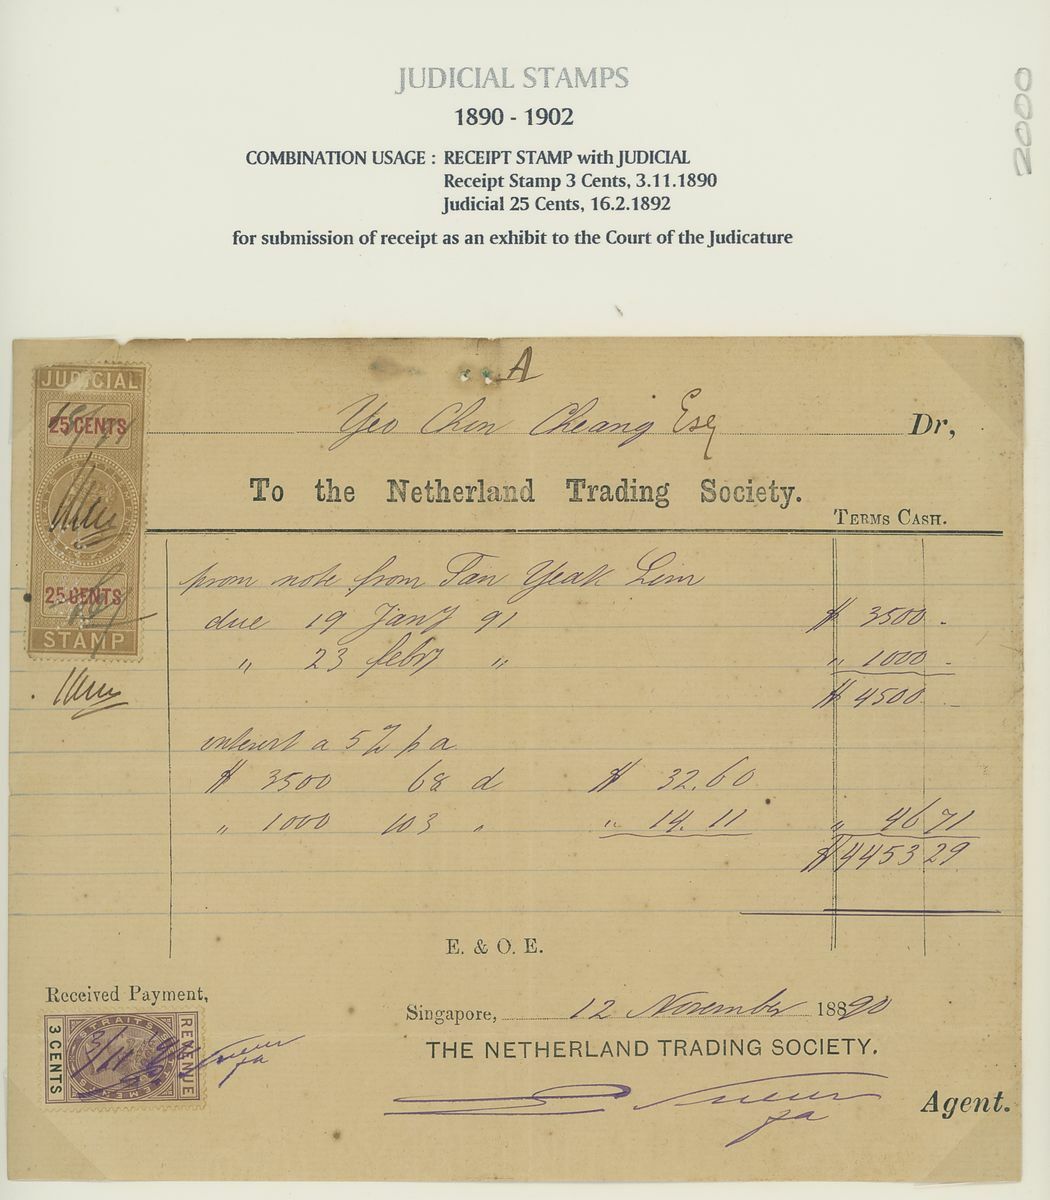 JUDICIAL STAMPS
1890 - 1902
COMBINATION USAGE : RECEIPT STAMP with JUDICIAL
Receipt Stamp 3 Cents, 3.11.1890
Judicial 25 Cents, 16.2.1892
for submission of receipt as an exhibit to the Court of the Judicature
2000
A
JUDICIAL
25 CENTS
25 CENTS
STAMP
Yeo Chin Cheang Esq Dr,
To the Netherland Trading Society.
TERMS CASH.
prom note from Tan Yeak Lim
due 19 Jany 91 $ 3500 -
" 23 febry " " 1000 -
$ 4500 -
interest a 5% p a
$ 3500 68 d $ 32.60
" 1000 103 " " 14.11 " 46 71
$ 4453 29
E. & O. E.
Received Payment,
Singapore, 12 November 1890
THE NETHERLAND TRADING SOCIETY.
pa
Agent.
3 CENTS
STRAITS SETTLEMENTS
REVENUE
3/11
pa